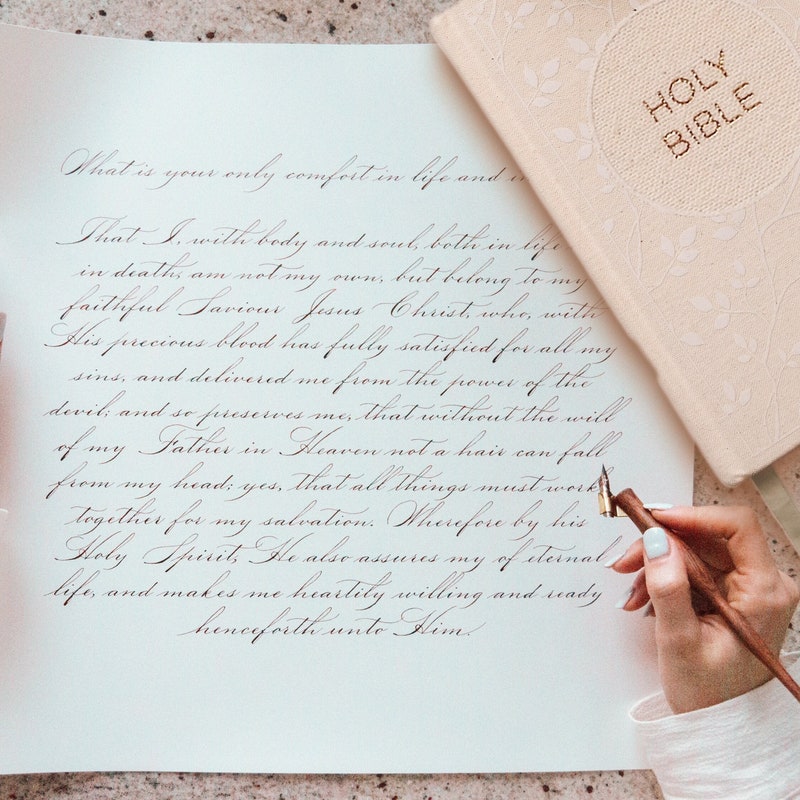 What is your only comfort in life and in
That I, with body and soul, both in life
in death, am not my own, but belong to my
faithful Saviour Jesus Christ, who, with
His precious blood has fully satisfied for all my
sins, and delivered me from the power of the
devil; and so preserves me, that without the will
of my Father in Heaven not a hair can fall
from my head; yes, that all things must work
together for my salvation. Wherefore by his
Holy Spirit, He also assures my of eternal
life, and makes me heartily willing and ready
henceforth unto Him.
HOLY
BIBLE